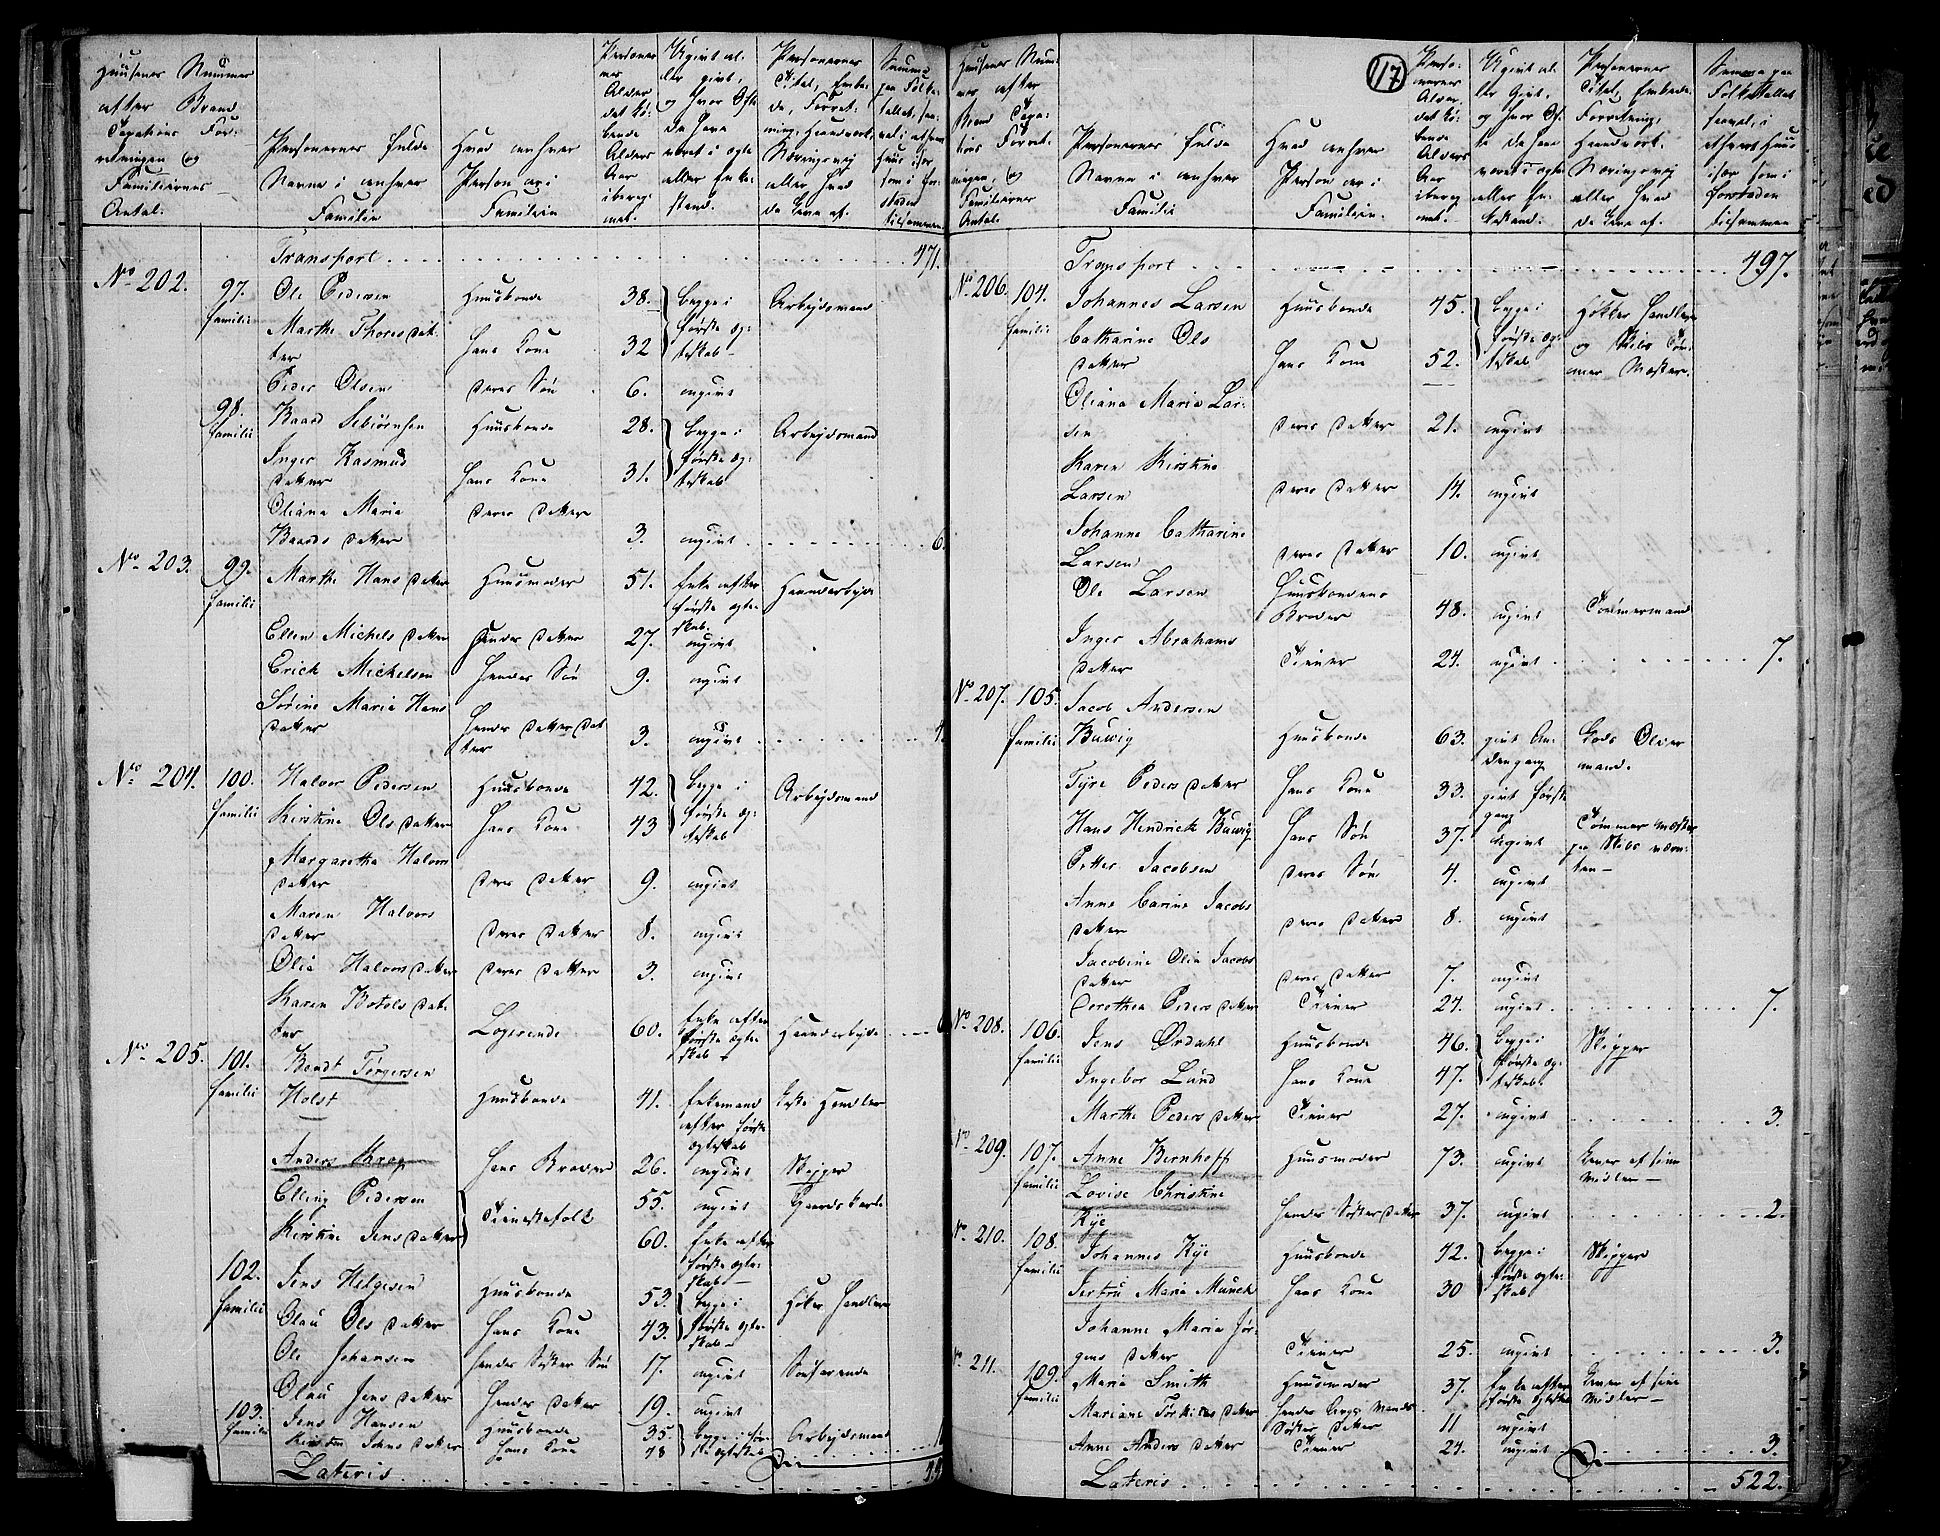 Huusenes Nummer
efter Brand
Taxations For-
retningen og
Familiernes
Antal.
Personernes fulde
Navne i enhver
Familie
Hvad enhver
Person er i
Familien
Personer-
nes
Alder
det lö-
bende
Alders
Aar
ibereg-
net.
Ugivt el-
ler givt,
og hvor ofte
de have
været i ægte
eller Enke-
stand.
Personernes
Titel, Embe-
de, Forret-
ning, Haandverk,
Næringsvej
eller hvad
de leve af.
Transport 471.
No 202.
97. familie
Ole Pedersen Huusbonde 38. begge i første ægteskab Arbejdsmand
Marthe Thoresdatter hans Kone 32
Peder Olsen deres Sön 6. ugivt
98. familie
Baard Sebiörnsen Huusbonde 28. begge i første ægteskab Arbejdsmand
Inger Rasmusdatter hans Kone 31.
Oliana Maria Baardsdatter deres datter 3. ugivt 6.
No 203.
99. familie
Marthe Hansdatter Huusmoder 51. Enke efter første ægteskab Haandarbejde
Ellen Michelsdatter hendes datter 27. ugivt
Erick Michelsen Hendes Sön 9. ugivt
Sörine Maria Hansdatter hendes datter datter 3. ugivt 4.
No 204.
100. familie
Halvor Pedersen Huusbonde 42. begge i første ægteskab Arbejdsmand
Kirstine Olsdatter hans Kone 43
Margarethe Halvorsdatter deres datter 9. ugivt
Maren Halvorsdatter deres datter 8. ugivt
Olia Halvorsdatter deres datter 3. ugivt
Karen Botolsdatter Logerende 60. Enke efter første ægteskab Haandarbejde
No 205.
101. familie
Bendt Törgersen Holst Huusbonde 41. Enkemand efter første ægteskab Handler
Anders Krog hans Broder 26. ugivt Skipper
Elling Pedersen Tienestefolk 55. ugivt Gaardskarl
Kirstine Jensdatter 60. Enke efter første ægteskab
102. familie
Jens Helgesen Huusbonde 53. begge i første ægteskab Höker Handler
Olau Olsdatter hans Kone 43.
Ole Johansen hendes Söster Sön 17. ugivt Söefarende
Olau Jensdatter hendes datter 19. ugivt
103. familie
Jens Hansen Huusbonde 35. begge i første ægteskab Arbejdsmand
Kirsten Johnsdatter hans Kone 43
Lateris
117
Huusenes Num-
mer efter
Brand Taxa-
tions Forret-
ningen, og
Familiernes
Antal.
Personernes fulde
Navne i enhver
Familie
Hvad enhver
Person er i
Familien.
Perso-
nernes
Alder
det lö-
bende
Alders
Aar
ibereg-
net.
Ugivt el-
ler Givt,
og hvor of-
te de have
været i ægte
eller En-
kestand.
Personernes
Titel, Embede
Forretning,
Haandverk
Næringsvej
eller hvad
de leve af.
Summa paa
Folketallet
saavel i
ethvert Huus
især som i
forstaden
tilsammen
Transport 497.
No 206.
104. familie
Johannes Larsen Huusbonde 45. begge i første ægteskab Höker Handler og Skibs Tömmer Mester.
Catharine Olsdatter hans Kone 52.
Oliana Maria Larsen deres datter 21. ugivt
Karen Kirstine Larsen deres datter 14. ugivt
Johanne Catharine Larsen deres datter 10. ugivt
Ole Larsen Huusbondens Broder 48. ugivt Tömmermand
Inger Abrahamsdatter Tiener 24. ugivt 7.
No 207.
105. familie
Jacob Andersen Buwig Huusbonde 63. givt Anden gang mand.
Tyre Pedersdatter hans Kone 33. givt første gang
Hans Hendrick Buwig hans Sön 37. ugivt Tömmer Mester
Petter Jacobsen deres Sön 4. ugivt
Anne Carine Jacobsdatter deres datter 8. ugivt
Jacobine Olia Jacobsdatter deres datter 7. ugivt
Dorothea Pedersdatter Tiener 24. ugivt 7.
No 208.
106. familie
Jens Ordahl Huusbonde 46. begge i første ægteskab Skipper
Ingebor Lund hans Kone 47.
Marthe Pedersdatter Tiener 27. ugivt 3.
No 209.
107. familie
Anne Bernhoff Huusmoder 73. ugivt Lever af sine Midler
Lovise Christine Rye hendes Söster datter 37. ugivt 2.
No 210.
108. familie
Johannes Rye Huusbonde 42. begge i første ægteskab Skipper
Jertru Maria Munch hans Kone 30
Johanne Maria Jörgensdatter Tiener 25. ugivt 3.
No 211.
109. familie
Maria Smith Huusmoder 37. Enke efter første ægteskab Lever af sine Midler
Mariane Törkildsdatter Söster datter 11 ugivt
Anne Andersdatter Tiener 24. ugivt 3.
Lateris 522.